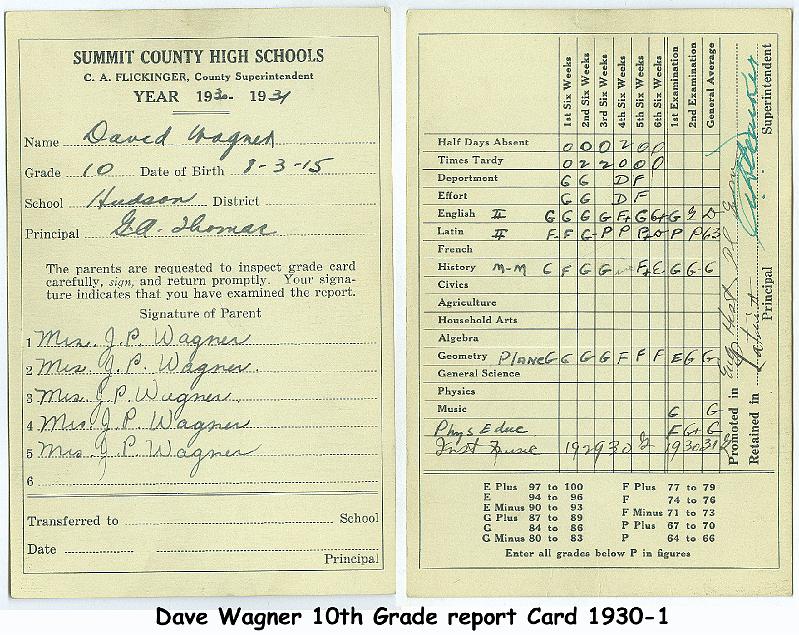 SUMMIT COUNTY HIGH SCHOOLS
C. A. FLICKINGER, County Superintendent
YEAR 1930- 1931
Name David Wagner
Grade 10 Date of Birth 8-3-15
School Hudson District
Principal G.A. Thomas
The parents are requested to inspect grade card
carefully, sign, and return promptly. Your signa-
ture indicates that you have examined the report.
Signature of Parent
1 Mrs. J. P. Wagner
2 Mrs. J. P. Wagner.
3 Mrs. J P. Wagner
4 Mrs. J. P. Wagner
5 Mrs. J P. Wagner
6
Transferred to School
Date
Principal
1st Six Weeks
2nd Six Weeks
3rd Six Weeks
4th Six Weeks
5th Six Weeks
6th Six Weeks
1st Examination
2nd Examination
General Average
Half Days Absent 0 0 0 2 0 0
Times Tardy 0 2 2 0 0 0
Deportment G G D F
Effort G G D F
English II G G G G F+ G G+ G G
Latin II F- F G- P P P P P 63
French
History M-M G F G G G G G
Civics
Agriculture
Household Arts
Algebra
Geometry Plane G G G G F F F E G G
General Science
Physics
Music G G
Phys Educ E G+ G
Inst Music 1929 30 1930 31
Promoted in
Retained in Latin II
Principal
Superintendent
E Plus 97 to 100
E 94 to 96
E Minus 90 to 93
G Plus 87 to 89
G 84 to 86
G Minus 80 to 83
F Plus 77 to 79
F 74 to 76
F Minus 71 to 73
P Plus 67 to 70
P 64 to 66
Enter all grades below P in figures
Dave Wagner 10th Grade report Card 1930-1